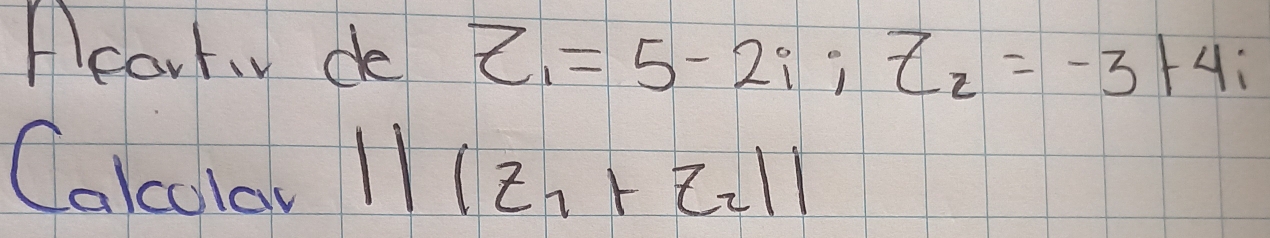 Apartir de Z₁ = 5 - 2i ; Z₂ = -3 + 4i
Calcular || (Z₁ + Z₂||